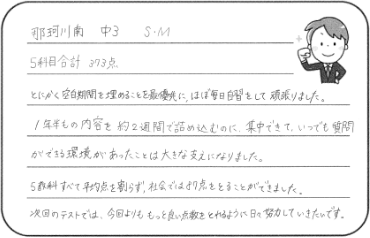 那珂川南 中3 S.M
5科目合計 373点
とにかく空白期間を埋めることを最優先に、ほぼ毎日自習をして頑張りました。
1年半もの内容を約2週間で詰め込むのに、集中できて、いつでも質問
ができる環境があったことは大きな支えになりました。
5教科すべて平均点を割らず、社会では87点をとることができました。
次回のテストでは、今回よりももっと良い点数をとれるように日々努力していきたいです。